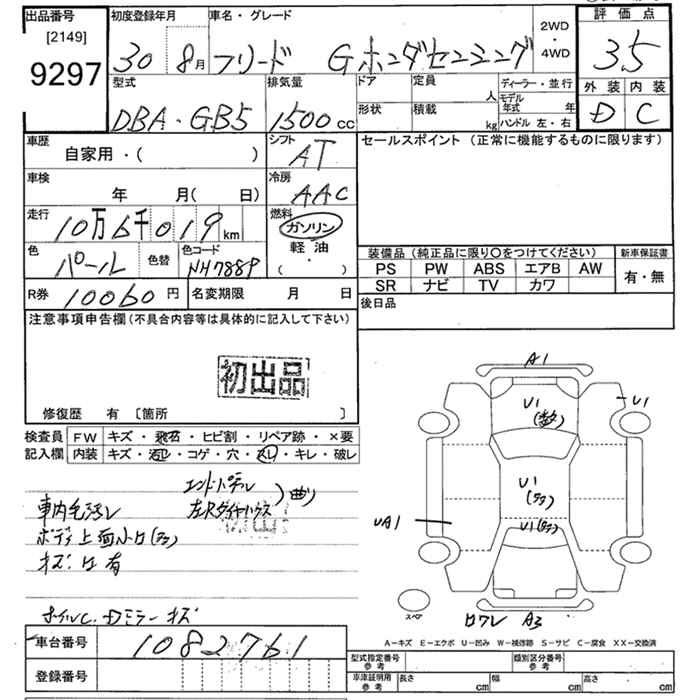 出品番号 初度登録年月 車名・グレード 2WD・4WD 評価点
[2149]
9297
30 8月 フリード Gホンダセンシング 3.5
型式 排気量 ドア 定員 人 ディーラー・並行 外装 内装
DBA・GB5 1500cc 形状 積載 kg モデル年式 年 ハンドル 左・右 D C
車歴 自家用・( ) シフト AT セールスポイント (正常に機能するものに限ります)
車検 年 月( 日) 冷房 AAC
走行 10万6千019km 燃料 ガソリン
軽油
( ・ )
色 パール 色替 色コード NH788P
装備品 (純正品に限り〇をつけてください) 新車保証書
PS PW ABS エアB AW 有・無
SR ナビ TV カワ
R券 10060円 名変期限 月 日 後日品
注意事項申告欄 (不具合内容等は具体的に記入して下さい)
初出品
修復歴 有 〔箇所 〕
検査員 FW キズ・飛石・ヒビ割・リペア跡・×要
記入欄 内装 キズ・汚レ・コゲ・穴・スレ・キレ・破レ
エンドパネル
左Rタイヤハウス
)曲り
車内毛汚レ
ボディ上面小凹(多)
キズ・凹有
ホイルC. Dミラーキズ
A1
U1
(数)
U1
U1
(多)
UA1
U1(多)
スペア
ロワレ A3
A-キズ E-エクボ U-凹み W-補修跡 S-サビ C-腐食 XX-交換済
車台番号 1082761
登録番号
型式指定番号 参考 類別区分番号 参考
車庫証明用 参考 長さ cm 幅 cm 高さ cm